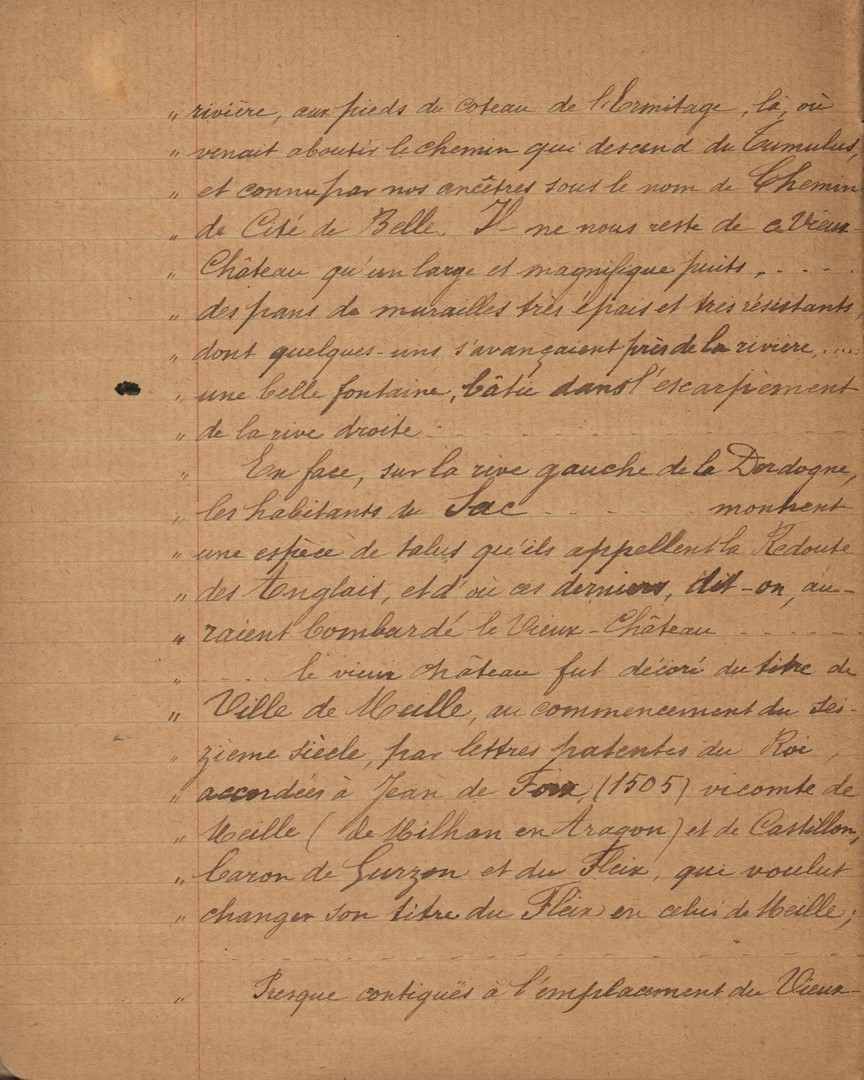 „ rivière, aux pieds du coteau de l'Ermitage, là, où
„ venait aboutir le chemin qui descend du Tumulus,
„ et connu par nos ancêtres sous le nom de Chemin
„ de Cité de Belle. Il ne nous reste de ce Vieux-
„ Château qu'un large et magnifique puits, . . . . .
„ des pans de murailles très épais et très résistants,
„ dont quelques-uns s'avançaient près de la rivière, ....
„ une belle fontaine, bâtie dans l'escarpement
„ de la rive droite - - - - - - - - - -
„ En face, sur la rive gauche de la Dordogne,
„ les habitants du Sac - - - - - montrent
„ une espèce de talus qu'ils appellent la Redoute
„ des Anglais, et d'où ces derniers, dit-on, au-
„ raient bombardé le Vieux-Château - - - - -
„ - - - - le vieux château fut décoré du titre de
„ Ville de Meille, au commencement du sei-
„ zième siècle, par lettres patentes du Roi,
„ accordées à Jean de Foix, (1505) vicomte de
„ Meille ( de Milhan en Aragon) et de Castillon,
„ baron de Gurzon et du Fleix, qui voulut
„ changer son titre du Fleix en celui de Meille;
- - - - - - - - - - - - - - - -
„ Presque contiguës à l'emplacement du Vieux-